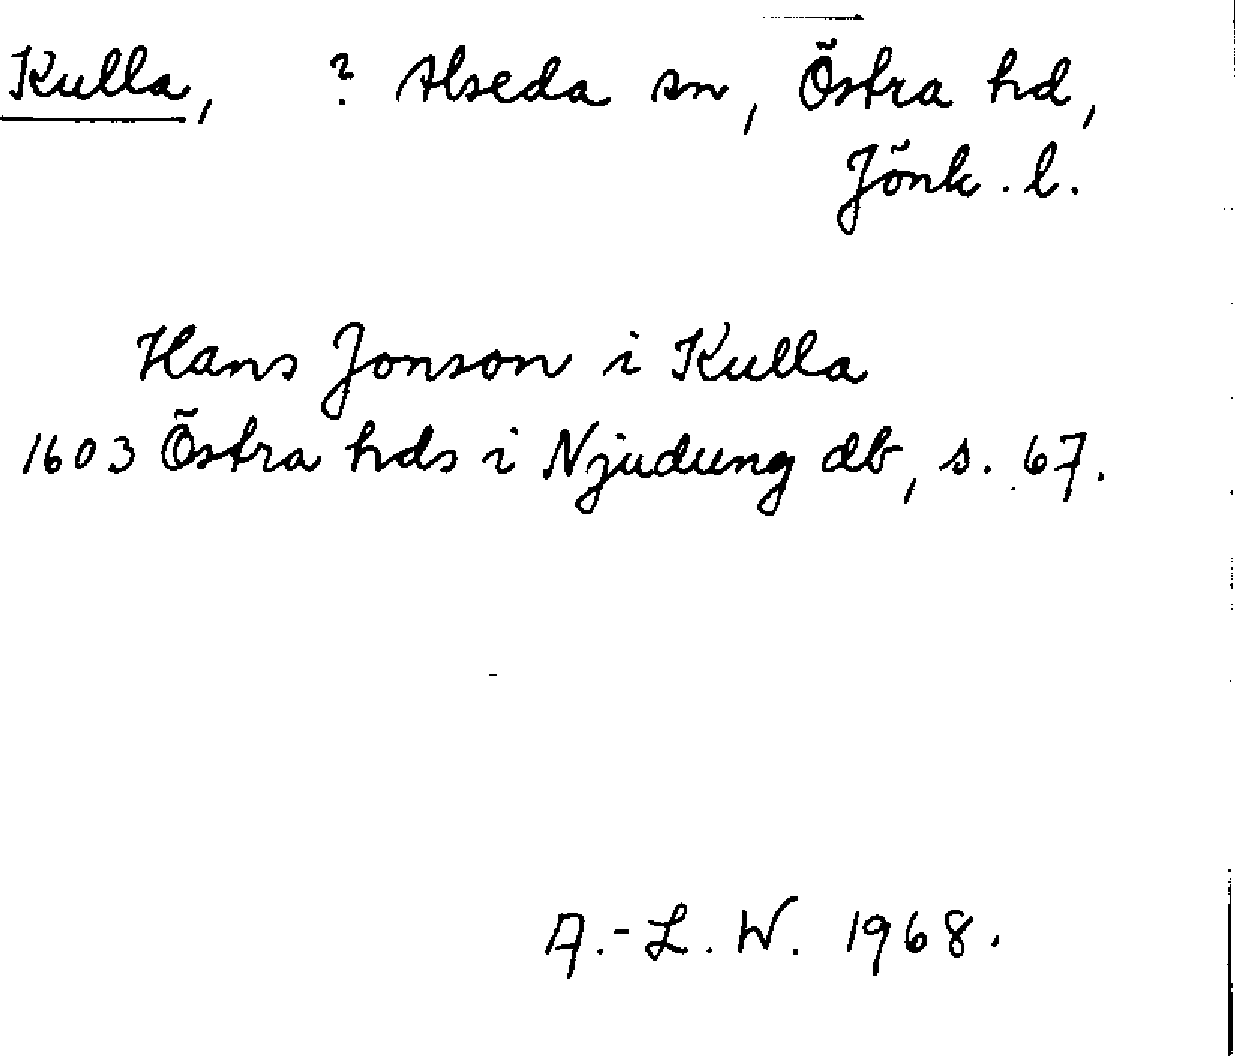 Kulla, ? Alseda sn, Östra hd,
Jönk. l.
Hans Jonson i Kulla
1603 Östra hds i Njudung db, s. 67.
A.-L. W. 1968.